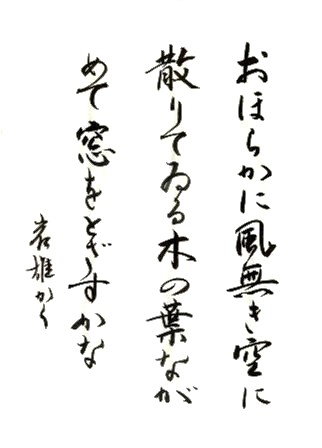 おほらかに風無き空に
散りてゐる木の葉なが
めて窓をとざすかな
岩雄かく